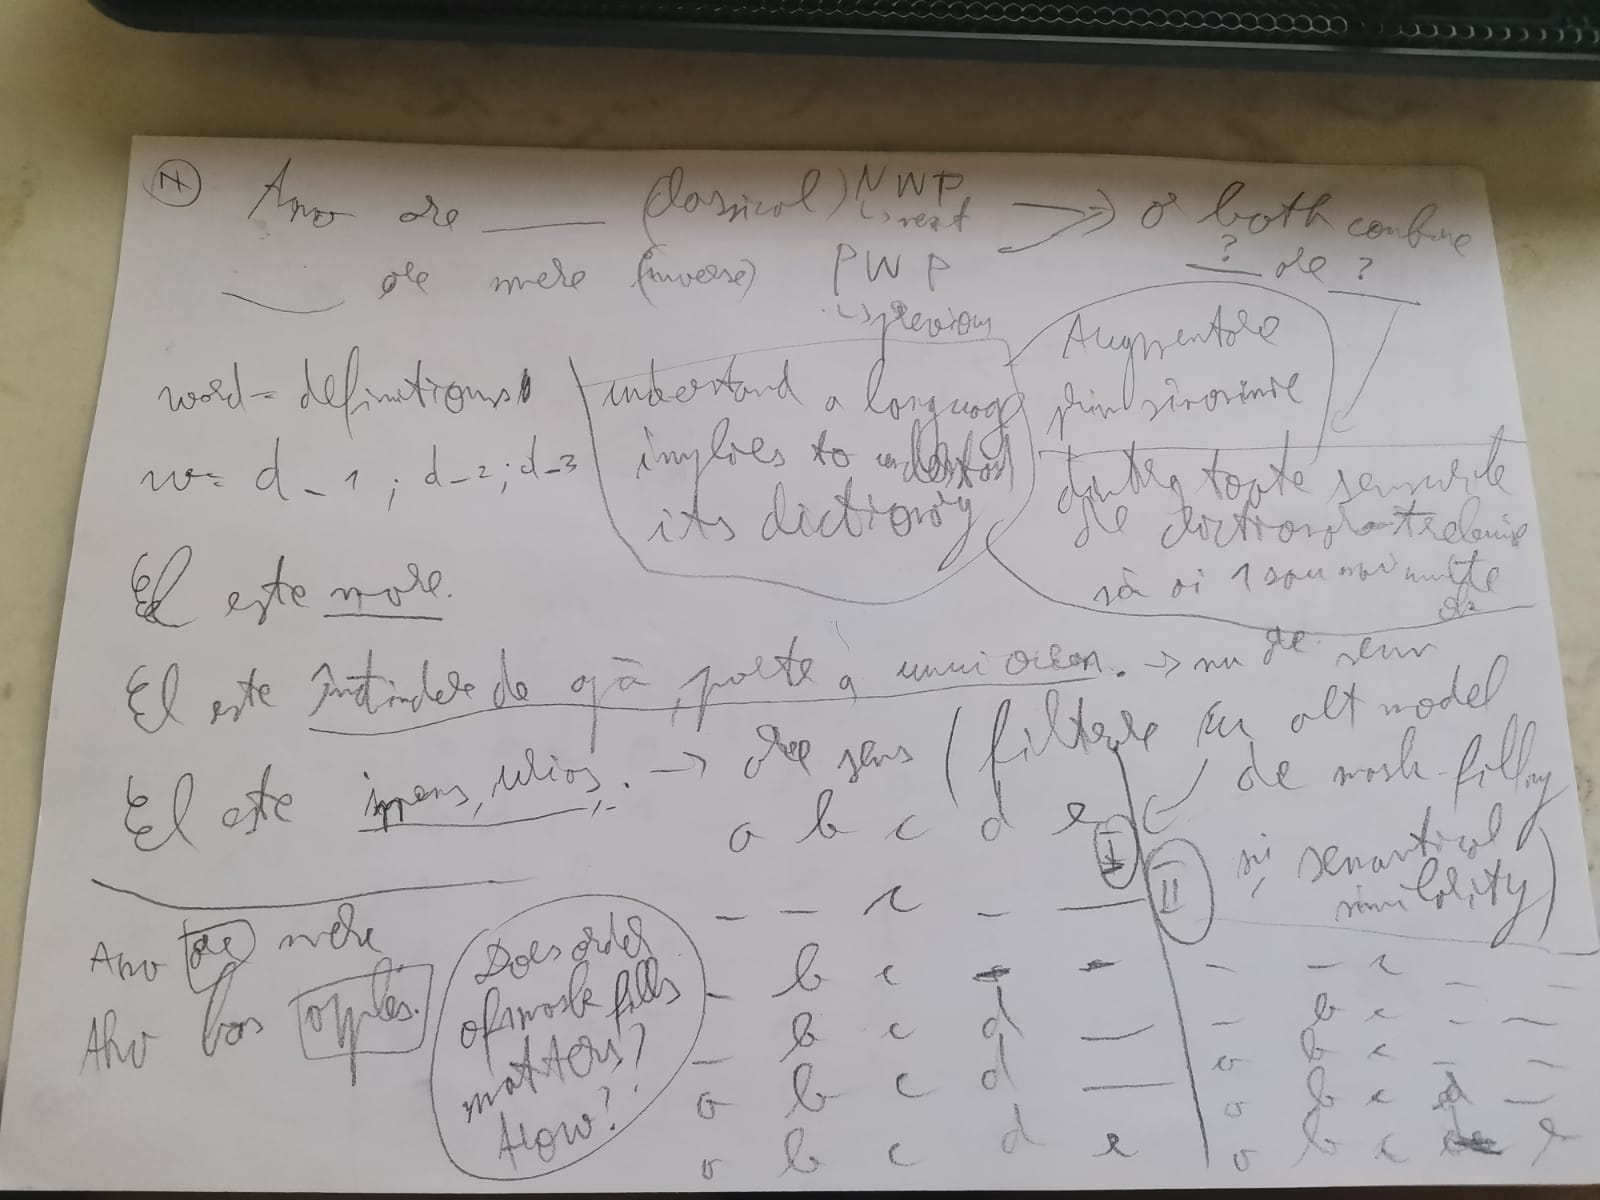 N
Ana are ___ (classical) NWP
↳ next
___ are mere (inverse) PWP
↳ previous
⇒ or both combine
? are ?
word = definitions
w = d_1; d_2; d_3
understand a language
implies to understand
its dictionary
Augmentare
prin sinonimie
dintre toate sensurile
de dictionar trebuie
să ai 1 sau mai multe
El este mare.
El este întindere de apă, parte a unui ocean. → nu are sens
El este imens, uriaș. → are sens (filtrare cu alt model
de mask-filling
și semantical
similarity)
Ana are mere
Ana has apples.
Does order
of mask fills
matters?
How?
I
a b c d e
_ _ c _ _
_ b c _ _
_ b c d _
a b c d _
a b c d e
II
_ _ c _ _
_ b c _ _
a b c _ _
a b c d _
a b c d e